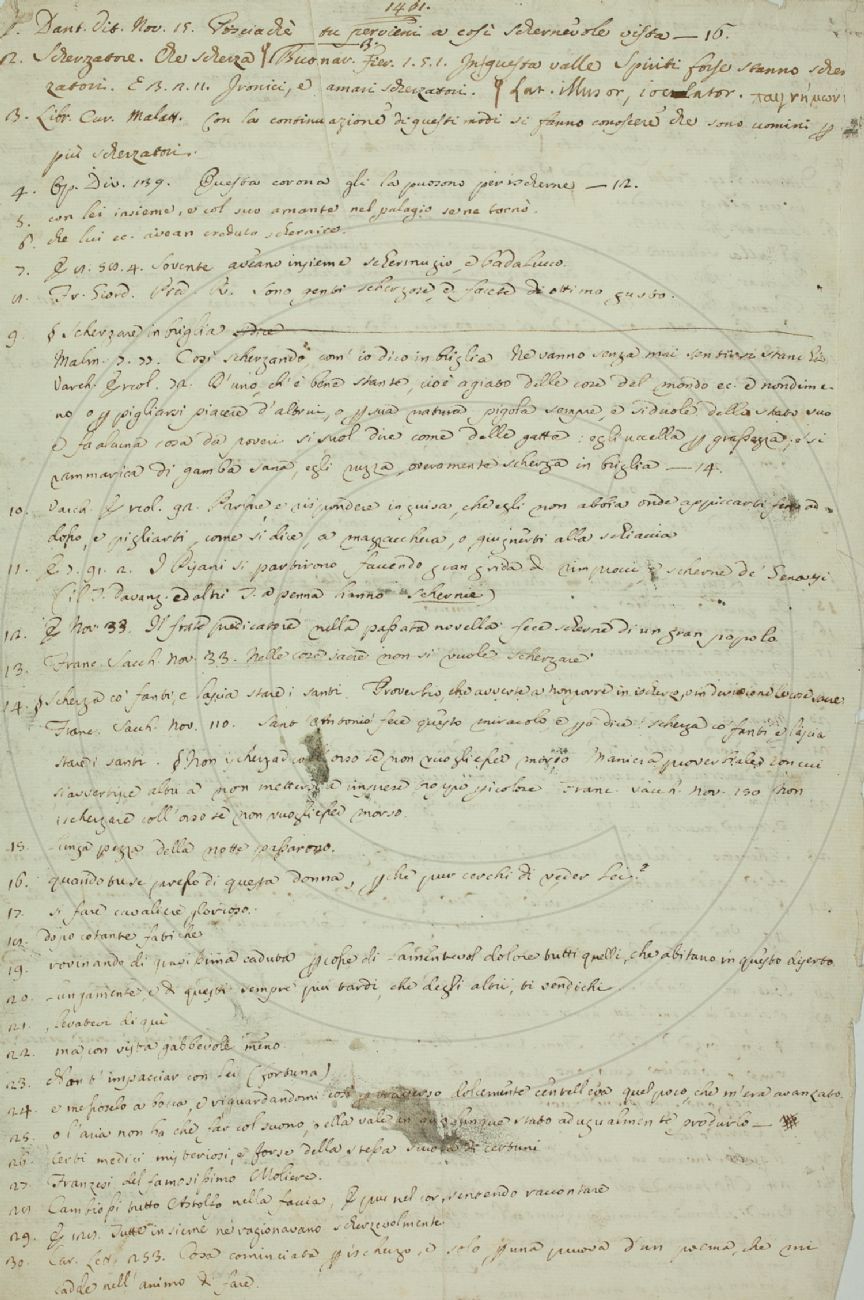 1461.
1. Dant. vit. Nov. 15. Posciachè tu pervieni a così schernevole vista — 16.
2. Scherzatore. Che scherza § Buonar. Fier. 1. 5. 1. In questa valle Spiriti forse stanno scher
zatori. E 3. 2. 11. Ironici, e amari scherzatori. § Lat. illusor, ioculator. παιγνήμων
3. Libr. Cur. Malatt. Con la continuazione di questi modi si fanno conoscere che sono uomini
più scherzatori.
4. Op. Div. 139. Questa corona gli la puosono per ischerne — 12.
5. con lei insieme, e col suo amante nel palagio se ne tornò.
6. che lui ec. avean creduto schernire.
7. 4. Sovente aveano insieme schermugio, e badalucco.
8. Fr. Giord. Pred. R. Sono gentì scherzose, e facete di ottimo gusto.
9. § Scherzare in briglia
Malm. 7. 77. Così scherzando com' io dico in briglia Ne vanno senza mai sentirsi stanchi
Varch. Ercol. 72. D'uno, ch'è bene stante, cioè agiato delle cose del mondo ec. e nondime-
no o p pigliarsi piacere d'altrui, o p sua natura pigola sempre, e si duole dello stato suo
e fa alcuna cosa da poveri si suol dire come delle gatte: egli uccella p grassezza; e' si
rammarica di gamba sana, egli ruzza, ovveramente scherza in briglia — 14.
10. Varch. Ercol. 92. Parlare e rispondere in guisa, che egli non abbia onde appiccarsi ad-
dosso, e pigliarti, come si dice, a mazzacchera, o giugnerti alla schiaccia
11. 7. 91. 2. I Pisani si partirono facendo gran grida di rimprocci, e scherne de' Genovesi
(il T. Davanz. ed altri T. a penna hanno schernie)
12. Nov. 33. Il frate predicatore nella passata novella fece scherne di un gran popolo
13. Franc. Sacch. Nov. 33. Nelle cose sacre non si vuole scherzare
14. § Scherza co' fanti, e lascia stare i santi. Proverbio, che avverte a non porre in ischerzo, o in derisione le cose sacre
Franc. Sacch. Nov. 110. Sant' Antonio fece questo miracolo, e però dice: scherza co' fanti e lascia
stare i santi. § Non scherzar coll' orso se non vuogli esser morso Maniera proverbiale con cui
s'avvertisce altrui a non mettersi a imprese troppo pericolose Franc. Sacch. Nov. 150 Non
ischerzare coll' orso se non vuogli esser morso.
15. Lunga pezza della notte passarono.
16. quando tu se' presso di questa donna, pchè pur cerchi di veder Lei?
17. si fare cavaliere glorioso.
18. dopo cotante fatiche
19. rovinando di gravissima caduta pcosse di lamentevol dolore tutti quelli, che abitano in questo diserto
20. Lungamente, e di questi sempre più tardi, che degli altri, ti vendichi.
21. levatevi di quì
22. ma con vista gabbevole meno
23. Non t' impacciar con Lei (fortuna)
24. e messoselo a bocca, e riguardandomi così a traverso dolcemente centellava quel poco, che m'era avanzato.
25. o l'aria non ha che far col suono, o ella vale in qualunque stato adugualmente produrlo —
26. Certi medici misteriosi, e forse della stessa scuola di certuni
27. Franzesi del famosissimo Moliere.
28. Cambiossi tutto Astolfo nella faccia, E pur nel cor, sentendo raccontare
29. Tutte insieme ne ragionavano scherzevolmente
30. Car. Lett. 253. Cosa cominciata p ischerzo, e solo p una pruova d'un poema, che mi
cadde nell' animo di fare.